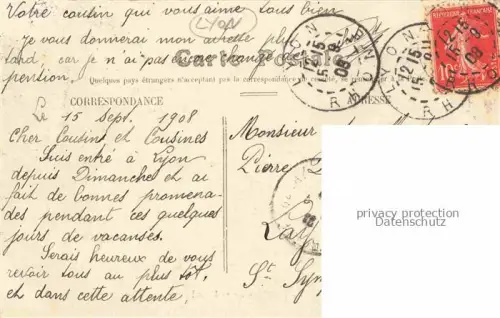 Votre cousin qui vous aime tous bien
LYON
je vous donnerai mon adresse plus
tard, car je n'ai pas changé
pention.
Carte Postale
Quelques pays étrangers n'acceptent pas la correspondance
CORRESPONDANCE
ADRESSE
Le 15 Sept. 1908
Cher Cousins et Cousines
Suis entré à Lyon
depuis Dimanche et ai
fait de bonnes promena-
des pendant ces quelques
jours de vacances.
Serais heureux de vous
revoir tous au plus tôt,
et dans cette attente,
Monsieur
Pierre
St. Sym
LYON
RHONE
12 15
15 9
08
LYON
RHONE
12 15
15 9
08
10
privacy protection
Datenschutz